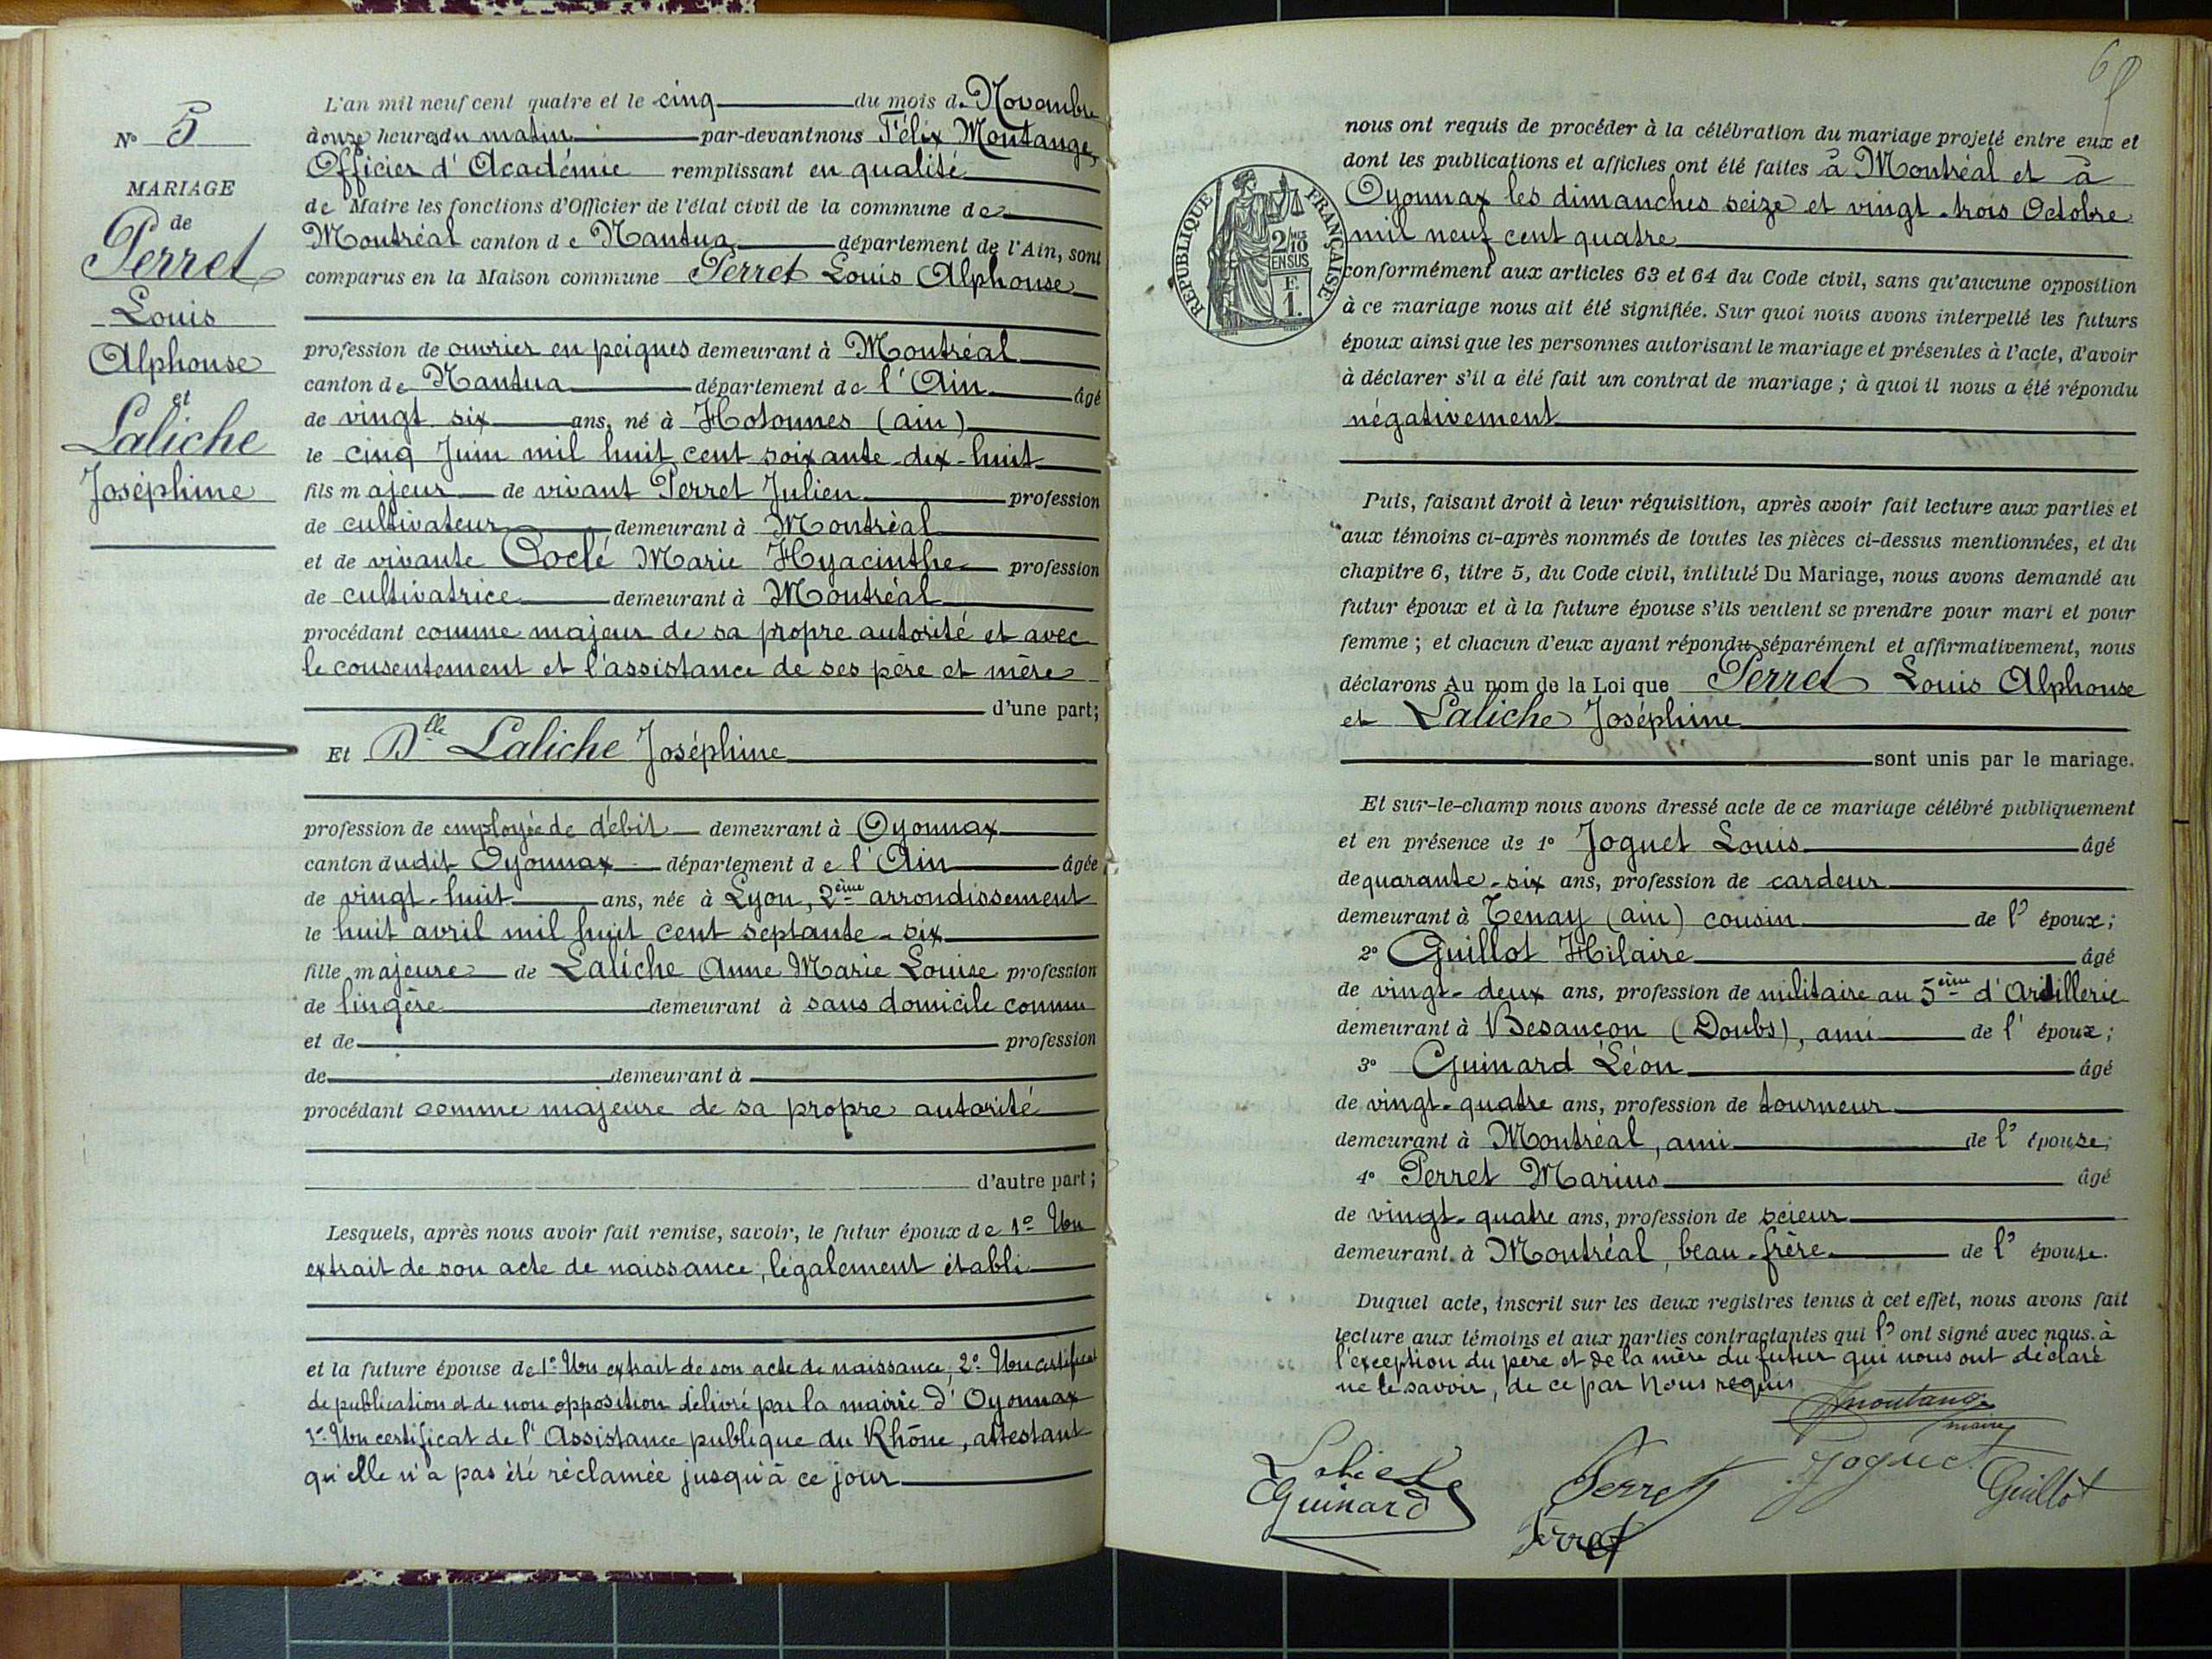 N° 5
MARIAGE
de
Perret
Louis
Alphonse
et
Laliche
Joséphine
L'an mil neuf cent quatre et le cinq du mois de Novembre
à onze heures du matin par-devant nous Félix Montange,
Officier d'Académie remplissant en qualité
de Maire les fonctions d'Officier de l'état civil de la commune de
Montréal canton de Nantua département de l'Ain, sont
comparus en la Maison commune Perret Louis Alphonse
profession de ouvrier en peignes demeurant à Montréal
canton de Nantua département de l'Ain âgé
de vingt six ans, né à Hotonnes (ain)
le cinq Juin mil huit cent soixante-dix-huit
fils majeur de vivant Perret Julien profession
de cultivateur demeurant à Montréal
et de vivante Coclé Marie Hyacinthe profession
de cultivatrice demeurant à Montréal
procédant comme majeur de sa propre autorité et avec
le consentement et l'assistance de ses père et mère
d'une part;
Et Dlle Laliche Joséphine
profession de employée de débit demeurant à Oyonnax
canton dudit Oyonnax département de l'Ain âgée
de vingt-huit ans, née à Lyon, 2ème arrondissement
le huit avril mil huit cent septante-six
fille majeure de Laliche Anne Marie Louise profession
de lingère demeurant à sans domicile connu
et de profession
de demeurant à
procédant comme majeure de sa propre autorité
d'autre part;
Lesquels, après nous avoir fait remise, savoir, le futur époux de 1° Un
extrait de son acte de naissance, légalement établi
et la future épouse de 1° Un extrait de son acte de naissance, 2° Un certificat
de publication et de non opposition délivré par la mairie d'Oyonnax
3° Un certificat de l'Assistance publique du Rhône, attestant
qu'elle n'a pas été réclamée jusqu'à ce jour
nous ont requis de procéder à la célébration du mariage projeté entre eux et
dont les publications et affiches ont été faites à Montréal et à
Oyonnax les dimanches seize et vingt-trois Octobre
mil neuf cent quatre
REPUBLIQUE FRANÇAISE
2/10 EN SUS
F.
1.
conformément aux articles 63 et 64 du Code civil, sans qu'aucune opposition
à ce mariage nous ait été signifiée. Sur quoi nous avons interpellé les futurs
époux ainsi que les personnes autorisant le mariage et présentes à l'acte, d'avoir
à déclarer s'il a été fait un contrat de mariage; à quoi il nous a été répondu
négativement
Puis, faisant droit à leur réquisition, après avoir fait lecture aux parties et
aux témoins ci-après nommés de toutes les pièces ci-dessus mentionnées, et du
chapitre 6, titre 5, du Code civil, intitulé Du Mariage, nous avons demandé au
futur époux et à la future épouse s'ils veulent se prendre pour mari et pour
femme; et chacun d'eux ayant répondu séparément et affirmativement, nous
déclarons Au nom de la Loi que Perret Louis Alphonse
et Laliche Joséphine
sont unis par le mariage.
Et sur-le-champ nous avons dressé acte de ce mariage célébré publiquement
et en présence de 1° Joguet Louis âgé
de quarante-six ans, profession de cardeur
demeurant à Tenay (ain) cousin de l'époux;
2° Guillot Hilaire âgé
de vingt-deux ans, profession de militaire au 5ème d'Artillerie
demeurant à Besançon (Doubs), ami de l'époux;
3° Guinard Léon âgé
de vingt-quatre ans, profession de tourneur
demeurant à Montréal, ami de l'épouse;
4° Perret Marius âgé
de vingt-quatre ans, profession de scieur
demeurant à Montréal, beau-frère de l'épouse.
Duquel acte, inscrit sur les deux registres tenus à cet effet, nous avons fait
lecture aux témoins et aux parties contractantes qui l'ont signé avec nous. à
l'exception du père et de la mère du futur qui nous ont déclaré
ne le savoir, de ce par Nous requis
Montange
maire
Laliche
Perret
Joguet
Guillot
Guinard
Perret